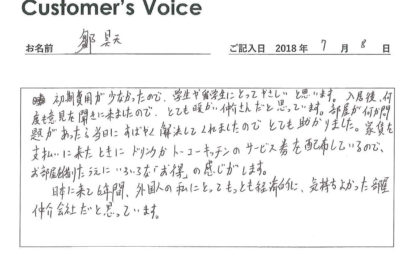 Customer's Voice
お名前 鄒昊天 ご記入日 2018年 7月 8日
初期費用が少なかったので、学生や留学生にとってやさしいと思います。入居後、何
度も意見を聞きに来ましたので、とても暖かい仲介さんだと思っています。部屋が何か問
題があったら当日にすばやく解決してくれましたのでとても助かりました。家賃を
支払いに来たときにドリンクかトーコーキッチンのサービス券を配布しているので、
お部屋を借りたうえにいろいろな「お得」の感じがします。
日本に来て6年間、外国人の私にとってもっとも経済的に、気持ちよかった部屋
仲介会社だと思っています。